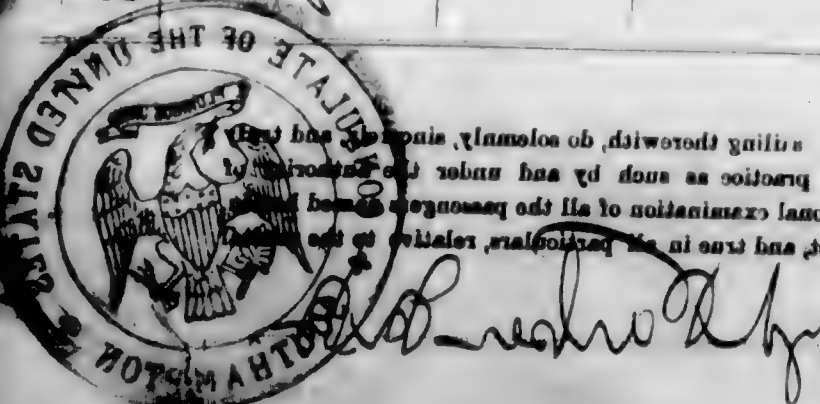 CONSULATE OF THE UNITED STATES
SOUTHAMPTON
ailing therewith, do solemnly, sincerely, and truly
practice as such by and under the authority of
onal examination of all the passengers named
t, and true in all particulars, relative to the